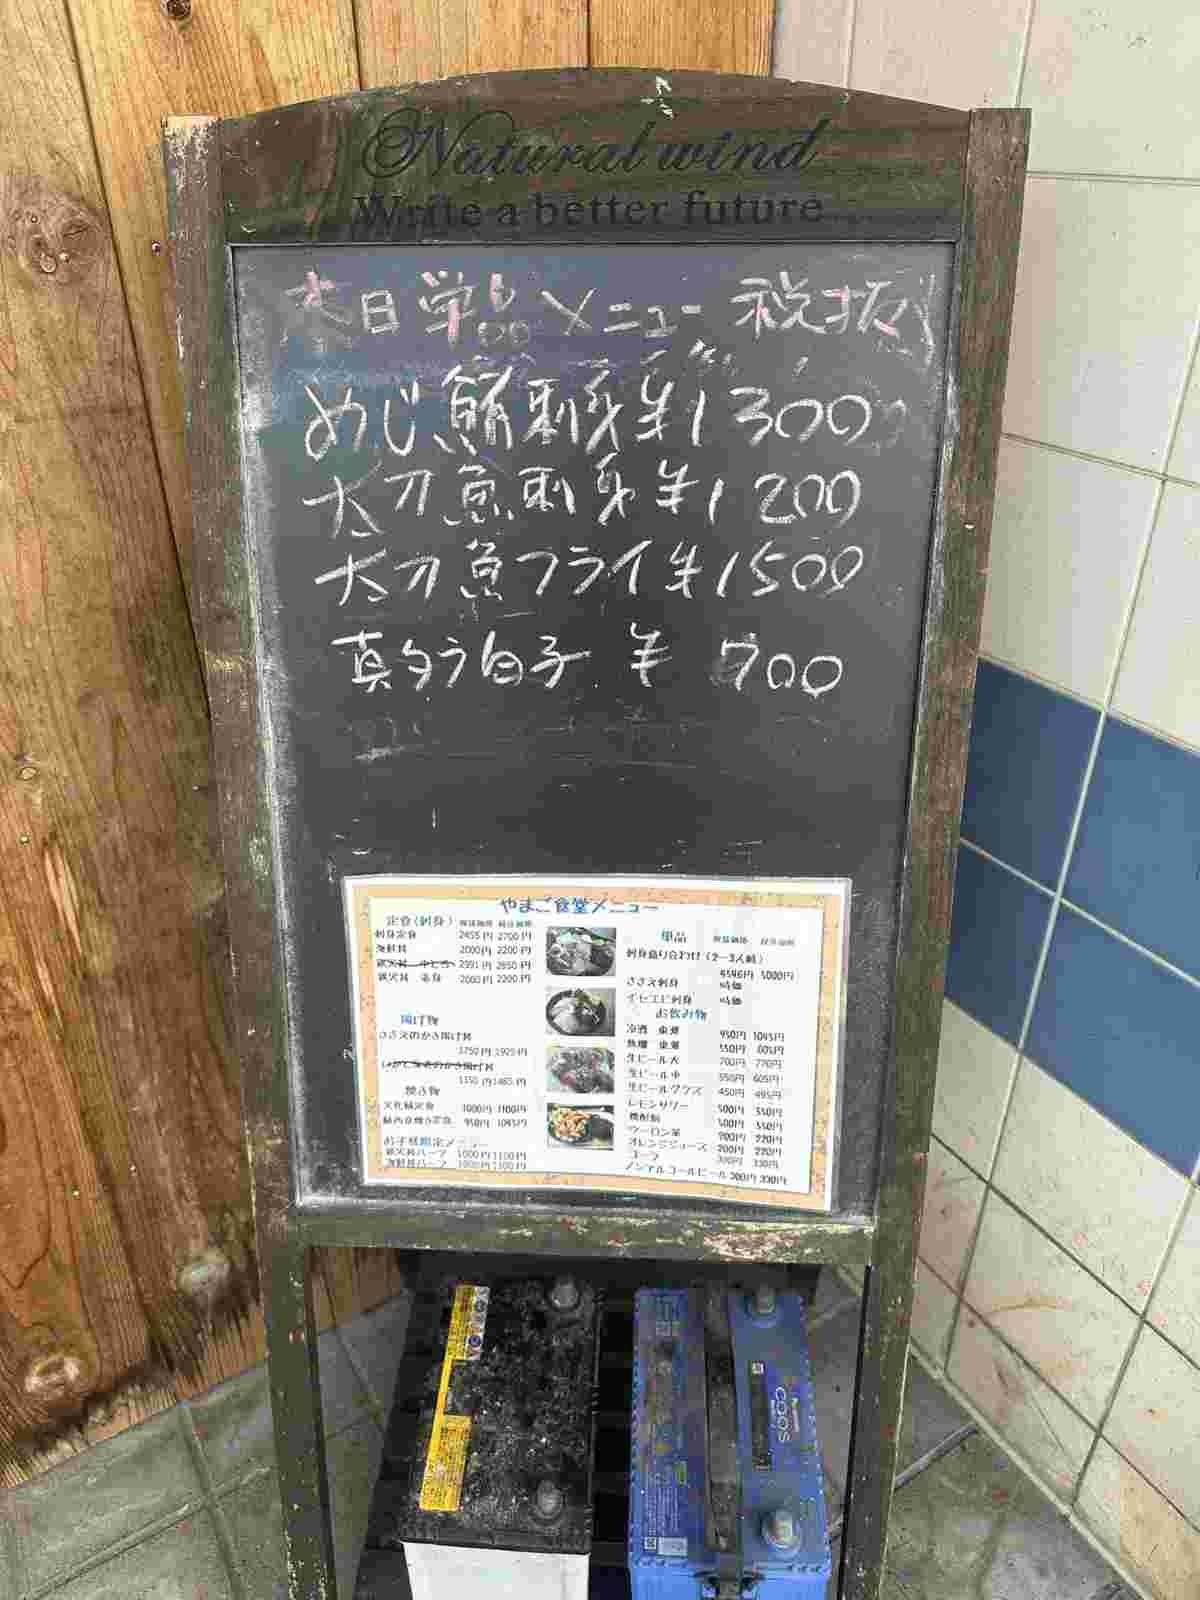 Natural wind
Write a better future
本日単品メニュー 税抜
めじ鮪刺身 ¥1300
太刀魚刺身 ¥1200
太刀魚フライ ¥1500
真タラ白子 ¥700
やまご食堂メニュー
定食(刺身) 税抜価格 税込価格
刺身定食 2455円 2700円
海鮮丼 2000円 2200円
2591円 2850円
2000円 2200円
揚げ物
さざえのかき揚げ丼
1750円 1925円
1350円 1485円
焼き物
1000円 1100円
950円 1045円
お子様限定メニュー
鉄火丼ハーフ 1000円 1100円
海鮮丼ハーフ 1000円 1100円
単品 税抜価格 税込価格
刺身盛り合わせ(2〜3人前)
4546円 5000円
さざえ刺身 時価
イセエビ刺身 時価
お飲み物
冷酒 950円 1045円
550円 605円
生ビール大 700円 770円
生ビール中 550円 605円
生ビールグラス 450円 495円
レモンサワー 500円 550円
500円 550円
ウーロン茶 200円 220円
オレンジジュース 200円 220円
コーラ 300円 330円
ノンアルコールビール 300円 330円
Panasonic
caos